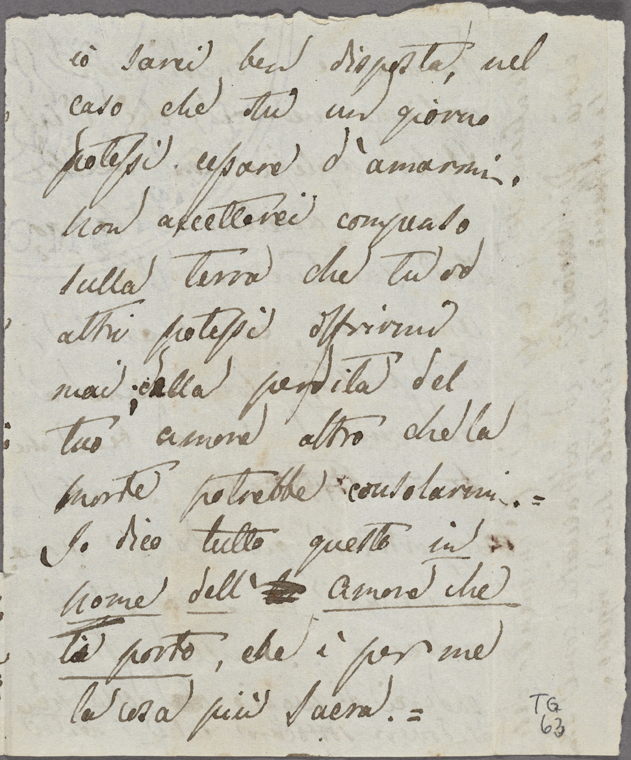 io sarei ben disposta, nel
caso che tu un giorno
potessi cessare d'amarmi.
Non accetterei compenso
sulla terra che tu od
altri potessi offrirmi
mai; alla perdita del
tuo amore altro che la
morte potrebbe consolarmi.=
Io dico tutto questo in
nome dell' amore che
ti porto, che è per me
la cosa più sacra.=
TG
63